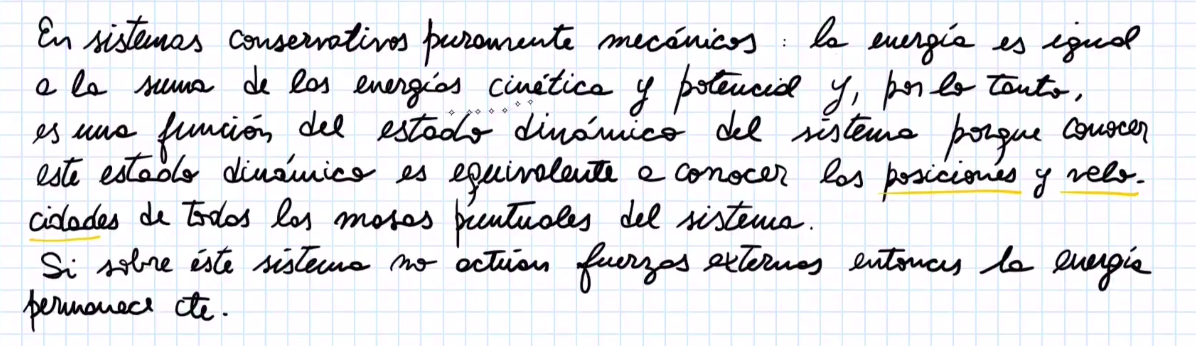 En sistemas conservativos puramente mecánicos: la energía es igual
a la suma de las energías cinética y potencial y, por lo tanto,
es una función del estado dinámico del sistema porque conocer
este estado dinámico es equivalente a conocer las posiciones y velo-
cidades de todas las masas puntuales del sistema.
Si sobre éste sistema no actúan fuerzas externas entonces la energía
permanece cte.